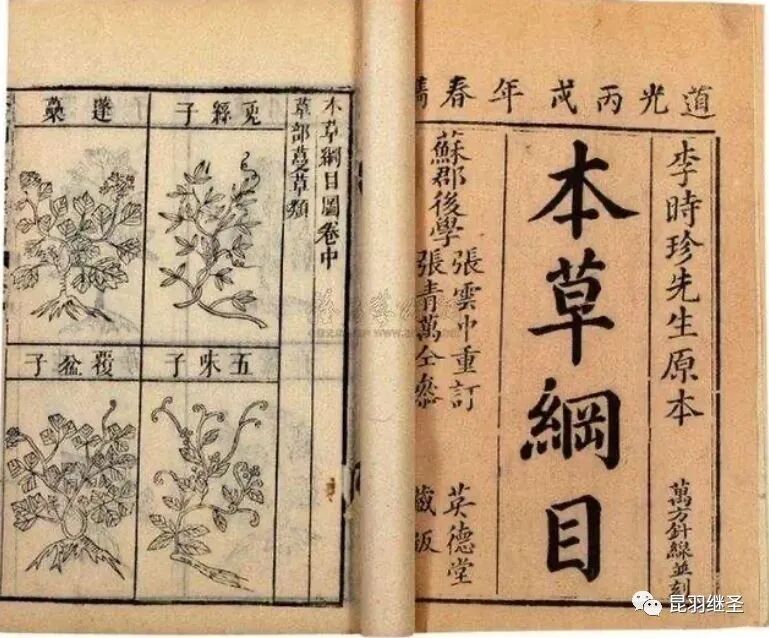 道光丙戌年春
李時珍先生原本
萬方針線並刻
本草綱目
蘇郡後學
張雲中重訂
張青萬仝參
英德堂
藏版
本草綱目圖卷中
草部蔓草類
兔絲子
蓬蘽
五味子
覆盆子
昆羽继圣